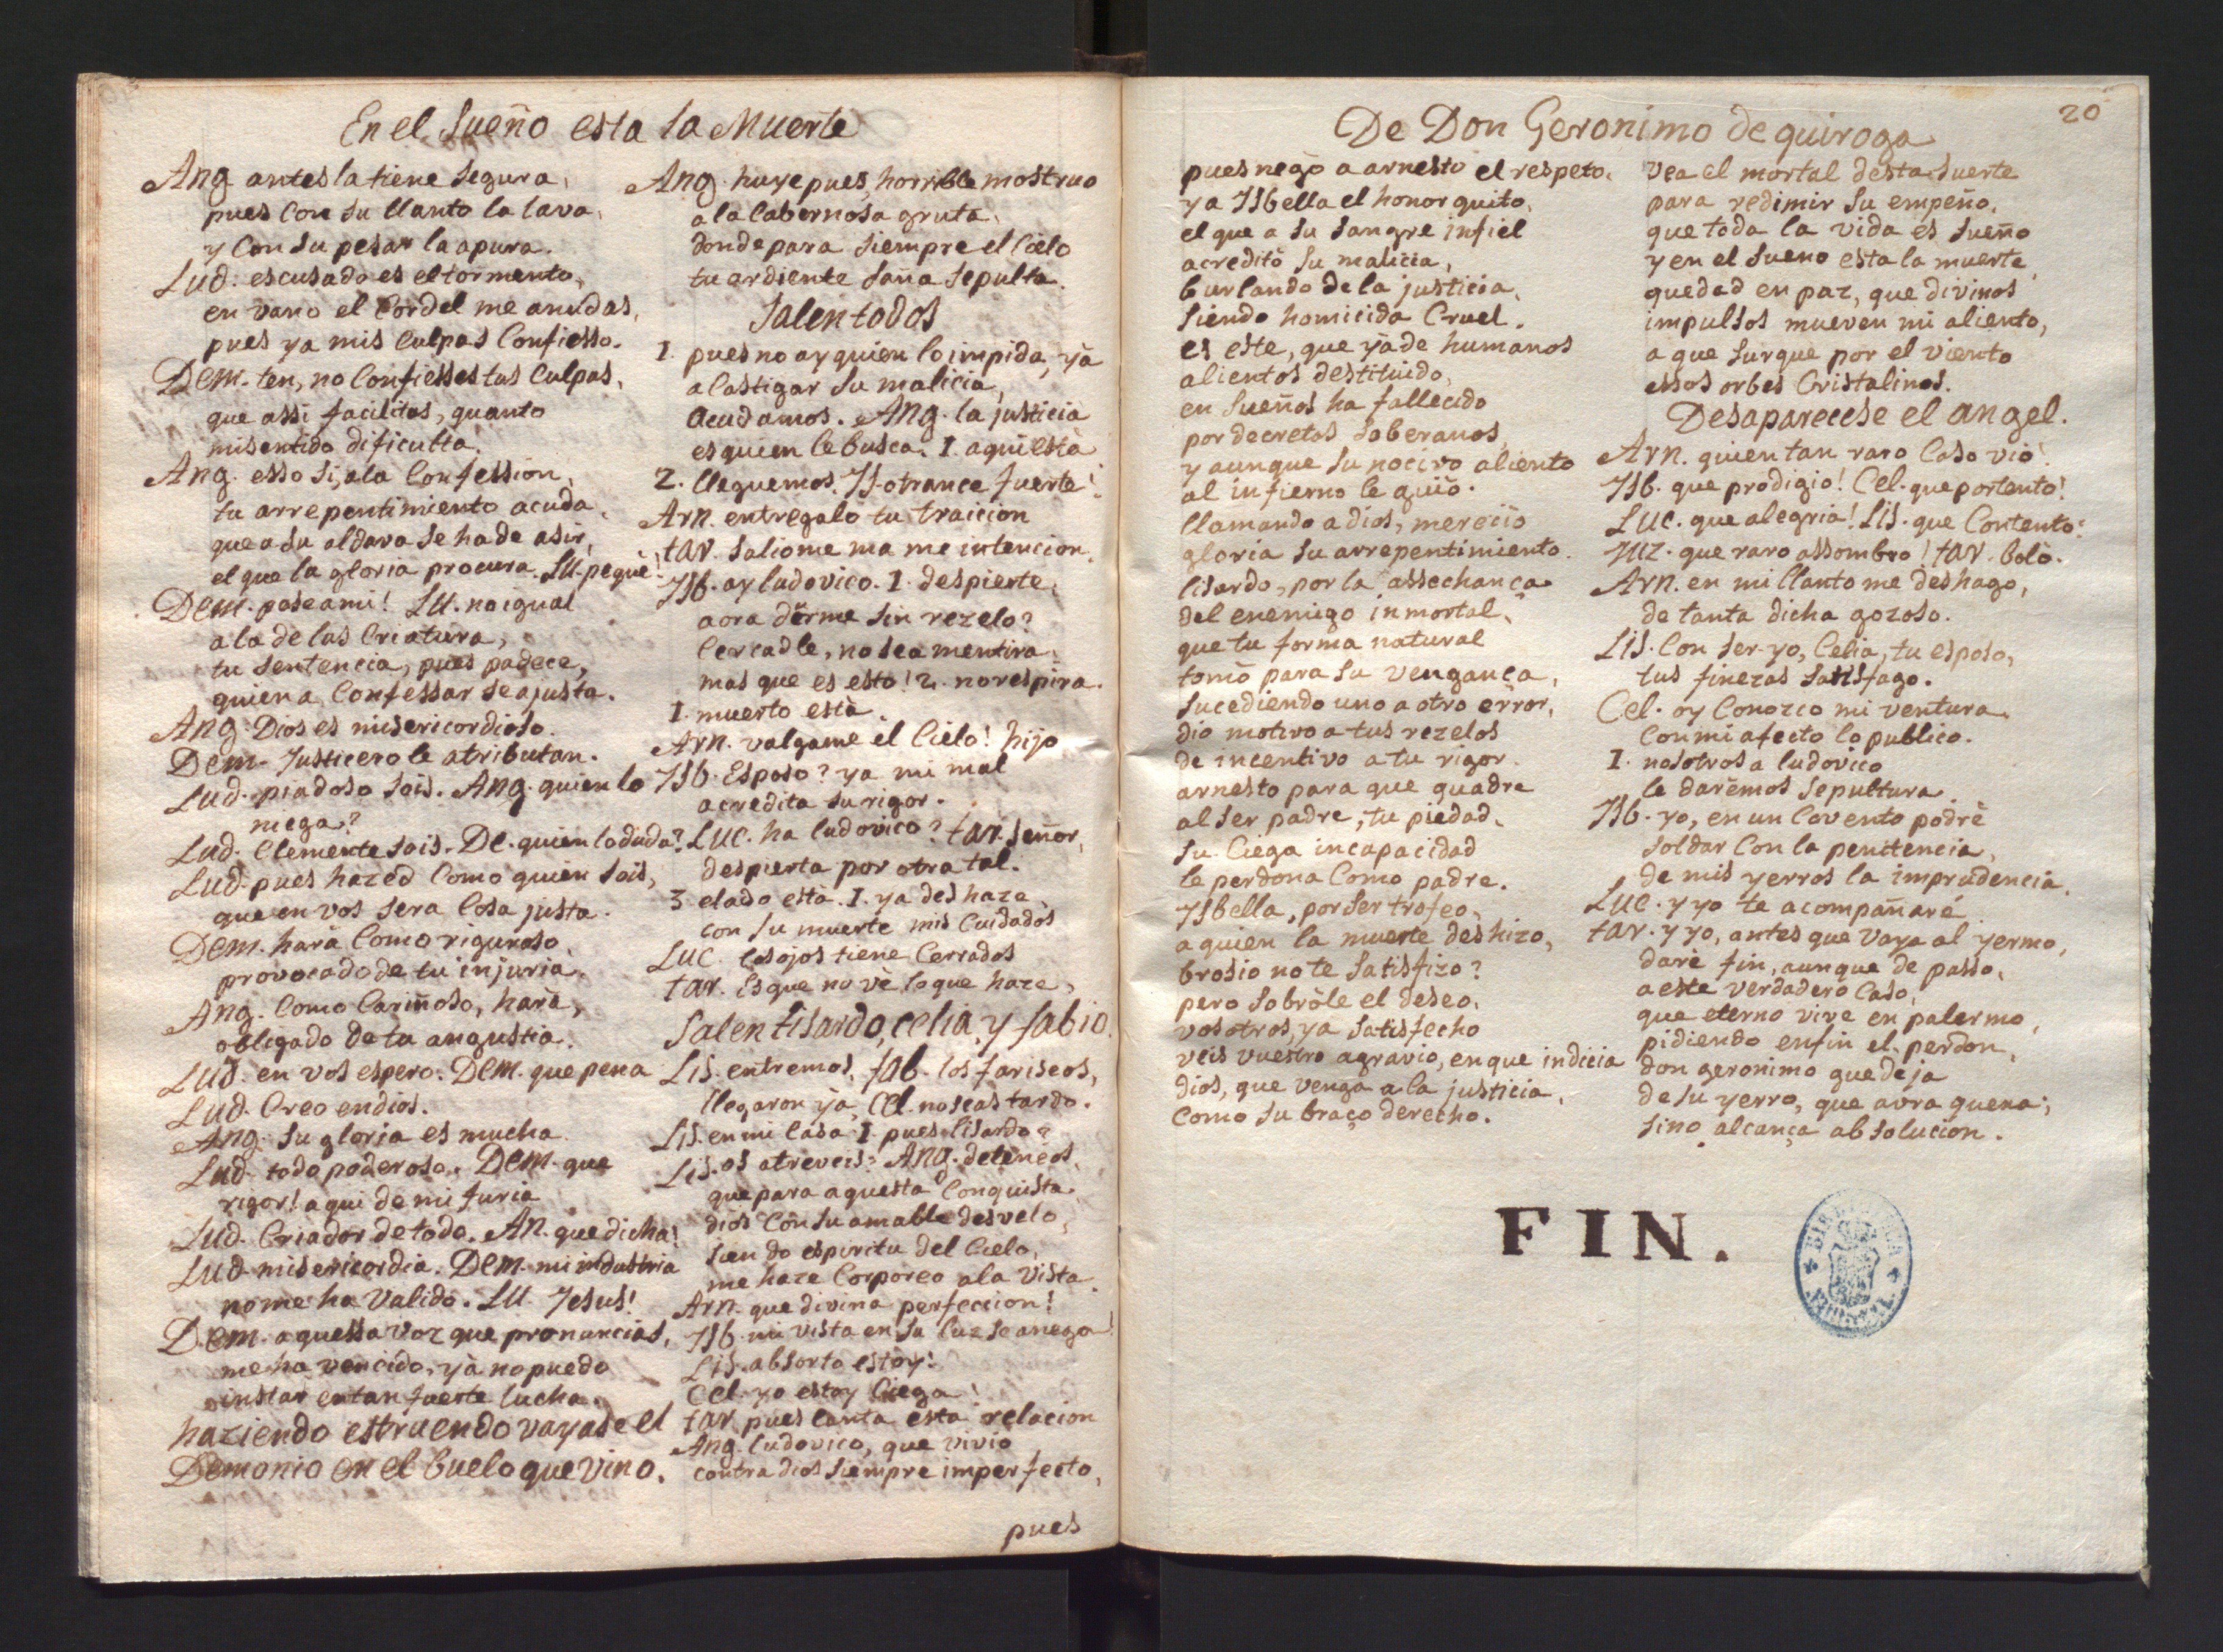 En el Sueño esta la Muerte
Ang. antes la tiene segura,
pues con su llanto la lava,
y con su pesar la apura.
Lud. escusado es el tormento,
en vano el cordel me anudas,
pues ya mis culpas confiesso.
Dem. ten, no confiesses tus culpas,
que assi facilitas, quanto
mi sentido dificulta.
Ang. esso si, a la confession,
tu arrepentimiento acuda,
que a su aldava se ha de asir,
el que la gloria procura. Lu. pequè!
Dem. pose a mi! Lu. no igual
a la de las criatura,
tu sentencia, pues padece,
quien a confessar se ajusta.
Ang. Dios es misericordioso.
Dem. Justiciero le atributan.
Lud. piadoso sois. Ang. quien lo
niega?
Lud. Clemente sois. De. quien lo duda?
Lud. pues hazed como quien sois,
que en vos sera cosa justa.
Dem. harà como riguroso,
provocado de tu injuria.
Ang. como cariñoso, harà,
obligado de tu angustia.
Lud. en vos espero. Dem. que pena
Lud. Creo en dios.
Ang. su gloria es mucha.
Lud. todo poderoso. Dem. que
rigor! aqui de mi furia
Lud. Criador de todo. An. que dicha!
Lud. misericordia. Dem. mi industria
no me ha valido. Lu. Jesus!
Dem. aquessa voz que pronuncias,
me ha vencido, yà no puedo
instar en tan fuerte lucha.
haziendo estruendo vayase el
Demonio en el buelo que vino.
Ang. huye pues, horrible mostruo
a la cabernosa gruta,
donde para siempre el cielo
tu ardiente saña sepulta.
Salen todos
1. pues no ay quien lo impida, yà
a castigar su malicia,
acudamos. Ang. la justicia
es quien le busca. 1. aqui està
2. lleguemos. Is. o trance fuerte!
Arn. entregalo tu traicion
tar. saliome ma me intencion.
Isb. ay ludovico. 1. despierte,
aora dürme sin rezelo?
cercadle, no sea mentira,
mas que es esto! 2. no respira.
1. muerto està.
Arn. valgame el cielo! hijo
Isb. Esposo? ya mi mal
acredita su rigor.
Luc. ha ludovico? tar. señor,
despierta por otra tal.
3 elado està. 1. ya deshaze,
con su muerte mis cuidados
Luc. los ojos tiene cerrados
tar. Es que no vè lo que haze,
Salen lisardo, celia, y fabio.
Lis. entremos. fab. los fariseos,
llegaron yà, Cel. no seas tardo.
Lis. en mi casa. 1. pues lisardo?
Lis. os atreveis? Ang. deteneos,
que para aquesta conquista,
dios con su amable desvelo,
siendo espiritu del cielo,
me haze corporeo a la vista.
Arn. que divina perfeccion!
Isb. mi vista en su luz se anega!
Lis. absorto estoy!
Cel. yo estoy ciega!
tar. pues canta esta relacion
Ang. ludovico, que vivio
contra dios siempre imperfecto,
pues
De Don Geronimo de quiroga
20
pues negò a arnesto el respeto,
y a Isbella el honor quito,
el que a su sangre infiel
acreditò su malicia,
burlando de la justicia,
siendo homicida cruel.
es este, que yà de humanos
alientos destituido,
en sueños ha fallecido
por decretos soberanos,
y aunque su nocivo aliento
al infierno le guiò.
llamando a dios, mereciò
gloria su arrepentimiento.
lisardo, por la assechança
del enemigo inmortal,
que tu forma natural
tomò para su vengança,
sucediendo uno a otro error,
dio motivo a tus rezelos
de incentivo a tu rigor.
arnesto para que quadre
al ser padre, tu piedad,
su ciega incapacidad
le perdona como padre.
Isbella, por ser trofeo,
a quien la muerte deshizo,
brosio no te satisfizo?
pero sobròle el deseo,
vosotros, ya satisfecho
veis vuestro agravio, en que indicia
dios, que venga a la justicia,
como su braço derecho.
vea el mortal desta suerte
para redimir su empeño,
que toda la vida es sueño
y en el sueno esta la muerte
quedad en paz, que divinos
impulsos mueven mi aliento,
a que surque por el viento
essos orbes cristalinos.
Desaparecese el angel.
Arn. quien tan raro caso viò!
Isb. que prodigio! Cel. que portento!
Luc. que alegria! Lis. que contento!
Juz. que raro assombro! tar. bolò.
Arn. en mi llanto me deshago,
de tanta dicha gozoso.
Lis. con ser yo, celia, tu esposo,
tus finezas satisfago.
Cel. oy conozco mi ventura,
con mi afecto lo publico.
1. nosotros a ludovico
le darèmos sepultura.
Isb. yo, en un covento podrè
soldar con la penitencia,
de mis yerros la imprudencia,
Luc. y yo te acompañaré
tar. y yo, antes que vaya al yermo,
darè fin, aunque de passo,
a este verdadero caso,
que eterno vive en palermo,
pidiendo en fin el perdon,
don geronimo que deja
de su yerro, que avra quexa,
sino alcança absolucion.
FIN.